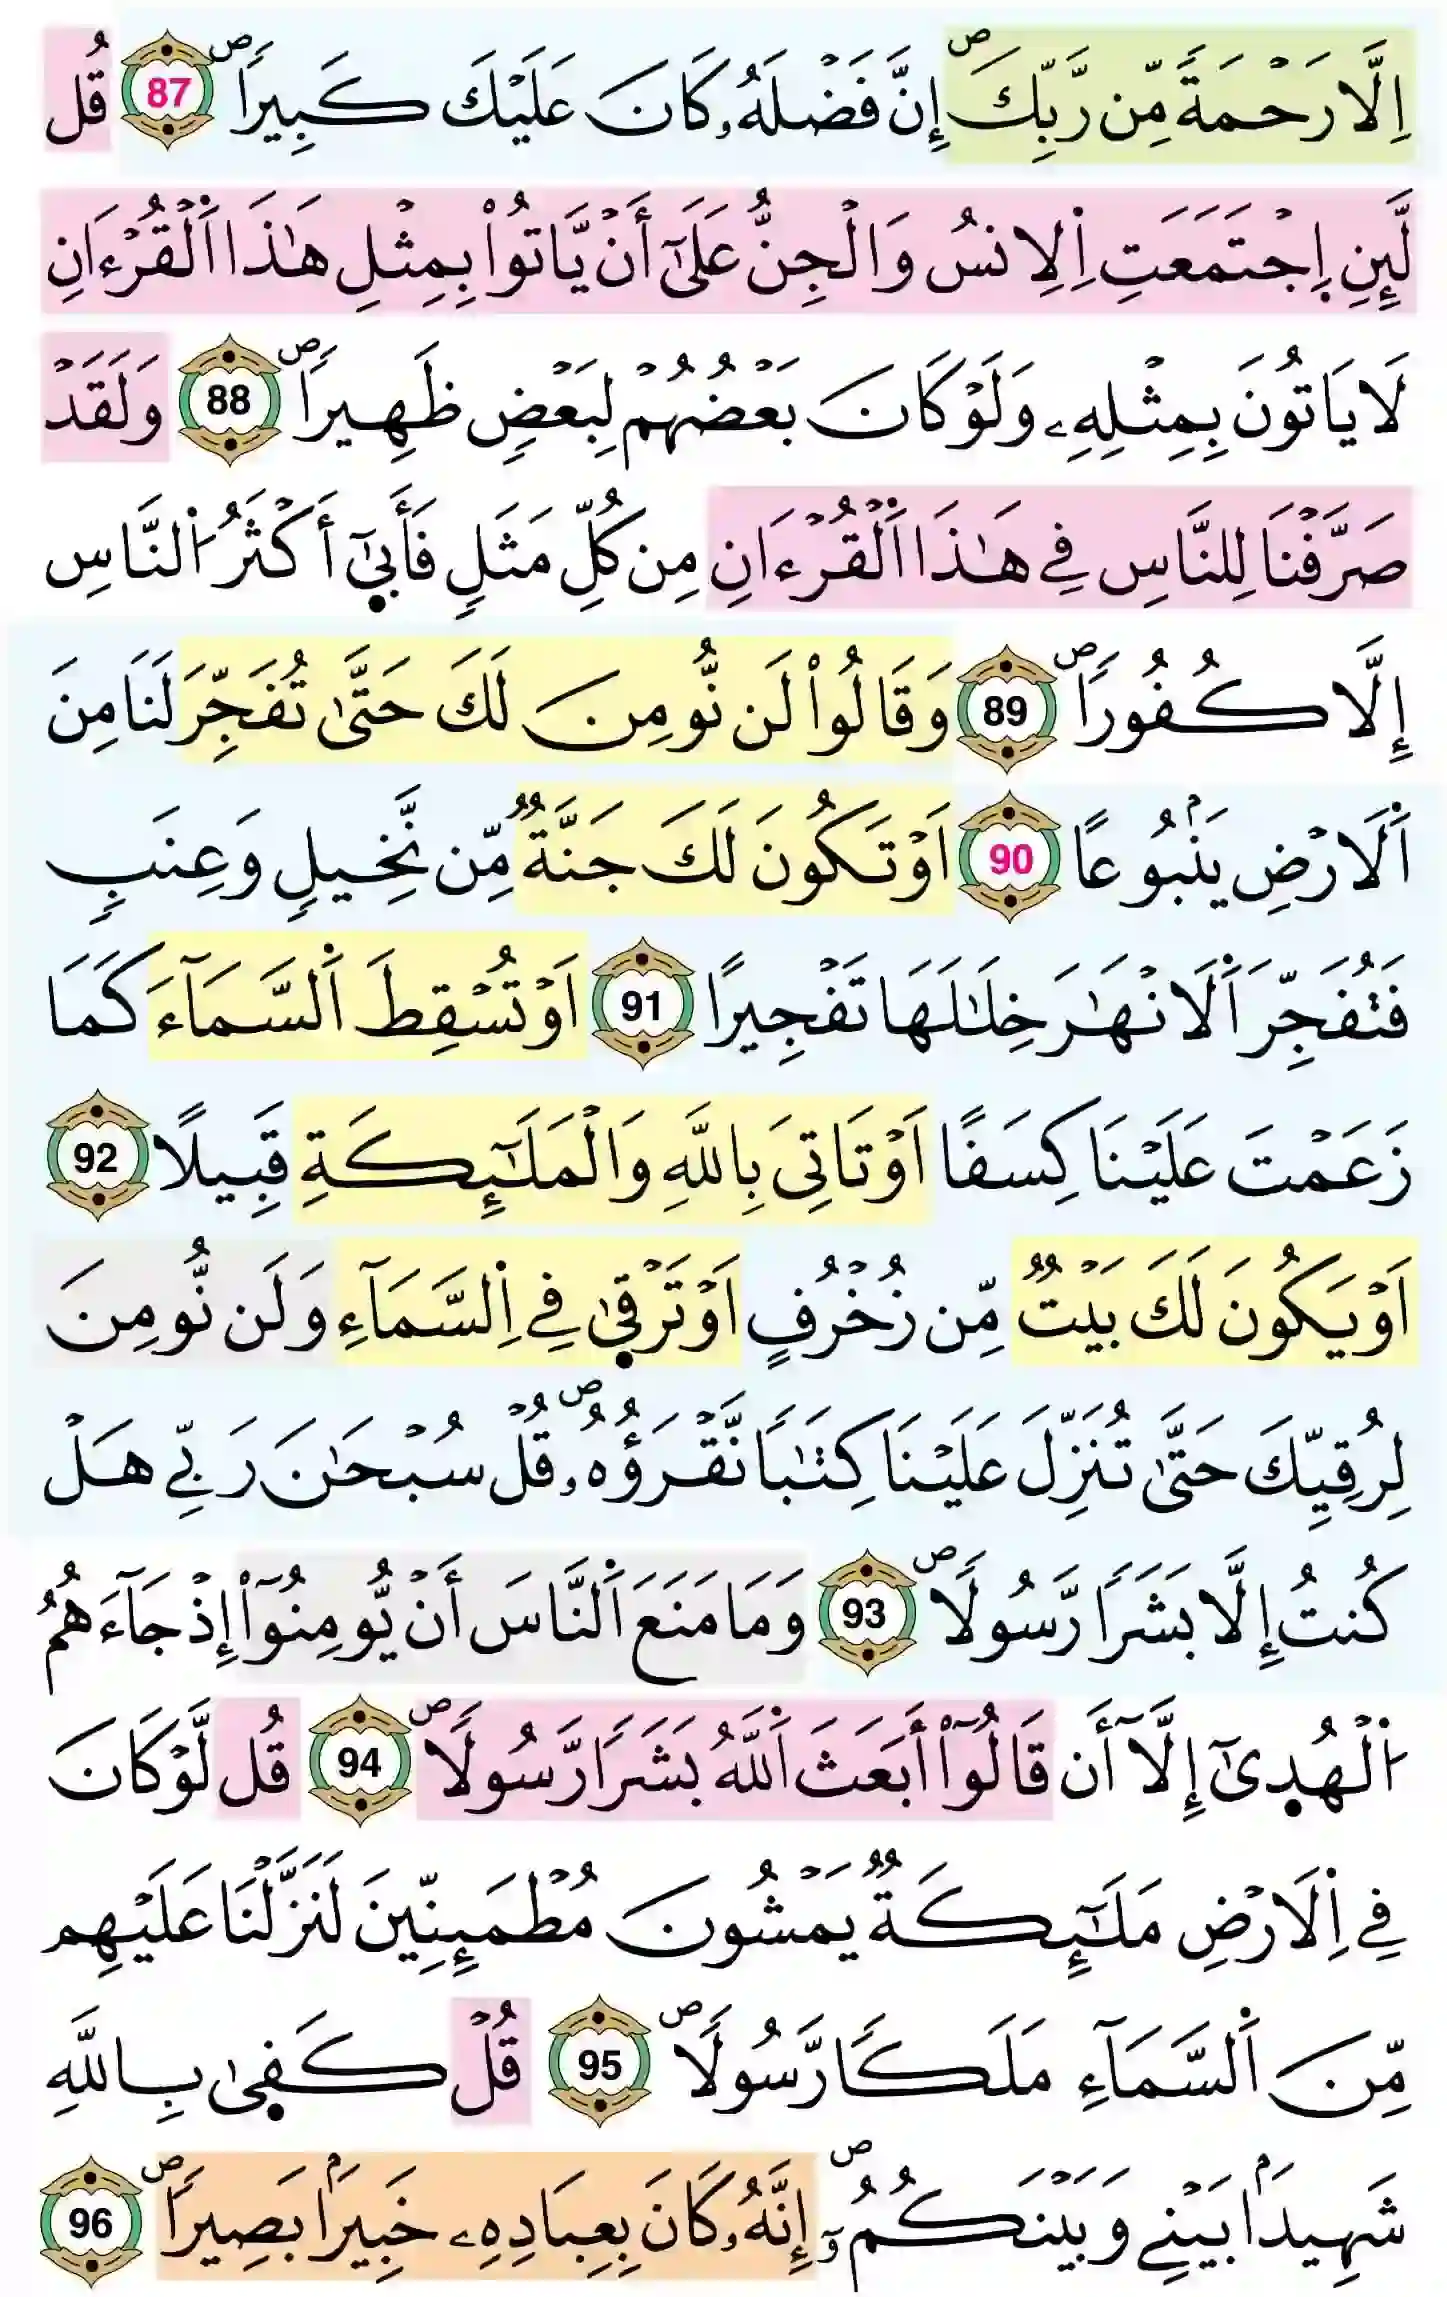 اِلَّا رَحْمَةً مِّن رَّبِّكَ ۖ إِنَّ فَضْلَهُۥ كَانَ عَلَيْكَ كَبِيراً ۖ 87 قُل
لَّئِنِ اِ۪جْتَمَعَتِ اِ۬لِانسُ وَالْجِنُّ عَلَىٰٓ أَنْ يَّاتُواْ بِمِثْلِ هَٰذَا اَ۬لْقُرْءَانِ
لَا يَاتُونَ بِمِثْلِهِۦ وَلَوْ كَانَ بَعْضُهُمْ لِبَعْضٍ ظَهِيراً ۖ 88 وَلَقَدْ
صَرَّفْنَا لِلنَّاسِ فِے هَٰذَا اَ۬لْقُرْءَانِ مِن كُلِّ مَثَلٍ فَأَب۪ىٰٓ أَكْثَرُ اُ۬لنَّاسِ
إِلَّا كُفُوراً ۖ 89 وَقَالُواْ لَن نُّومِنَ لَكَ حَتَّىٰ تُفَجِّرَ لَنَا مِنَ
اَ۬لَارْضِ يَنۢبُوعاً 90 اَوْ تَكُونَ لَكَ جَنَّةٌ مِّن نَّخِيلٍ وَعِنَبٍ
فَتُفَجِّرَ اَ۬لَانْهَٰرَ خِلَٰلَهَا تَفْجِيراً 91 اَوْ تُسْقِطَ اَ۬لسَّمَآءَ كَمَا
زَعَمْتَ عَلَيْنَا كِسَفًا اَوْ تَاتِىَ بِاللَّهِ وَالْمَلَٰٓئِكَةِ قَبِيلًا 92
اَوْ يَكُونَ لَكَ بَيْتٌ مِّن زُخْرُفٍ اَوْ تَرْق۪ىٰ فِے اِ۬لسَّمَآءِ وَلَن نُّومِنَ
لِرُقِيِّكَ حَتَّىٰ تُنَزِّلَ عَلَيْنَا كِتَٰباً نَّقْرَؤُهُۥ ۖ قُلْ سُبْحَٰنَ رَبِّے هَلْ
كُنتُ إِلَّا بَشَراً رَّسُولًا ۖ 93 وَمَا مَنَعَ اَ۬لنَّاسَ أَنْ يُّومِنُوٓاْ إِذْ جَآءَهُمُ
اُ۬لْهُد۪ىٰٓ إِلَّآ أَن قَالُوٓاْ أَبَعَثَ اَ۬للَّهُ بَشَراً رَّسُولًا ۖ 94 قُل لَّوْ كَانَ
فِے اِ۬لَارْضِ مَلَٰٓئِكَةٌ يَمْشُونَ مُطْمَئِنِّينَ لَنَزَّلْنَا عَلَيْهِم
مِّنَ اَ۬لسَّمَآءِ مَلَكاً رَّسُولًا ۖ 95 قُلْ كَف۪ىٰ بِاللَّهِ
شَهِيداَۢ بَيْنِے وَبَيْنَكُمُۥٓ ۖ إِنَّهُۥ كَانَ بِعِبَادِهِۦ خَبِيراَۢ بَصِيراً ۖ 96